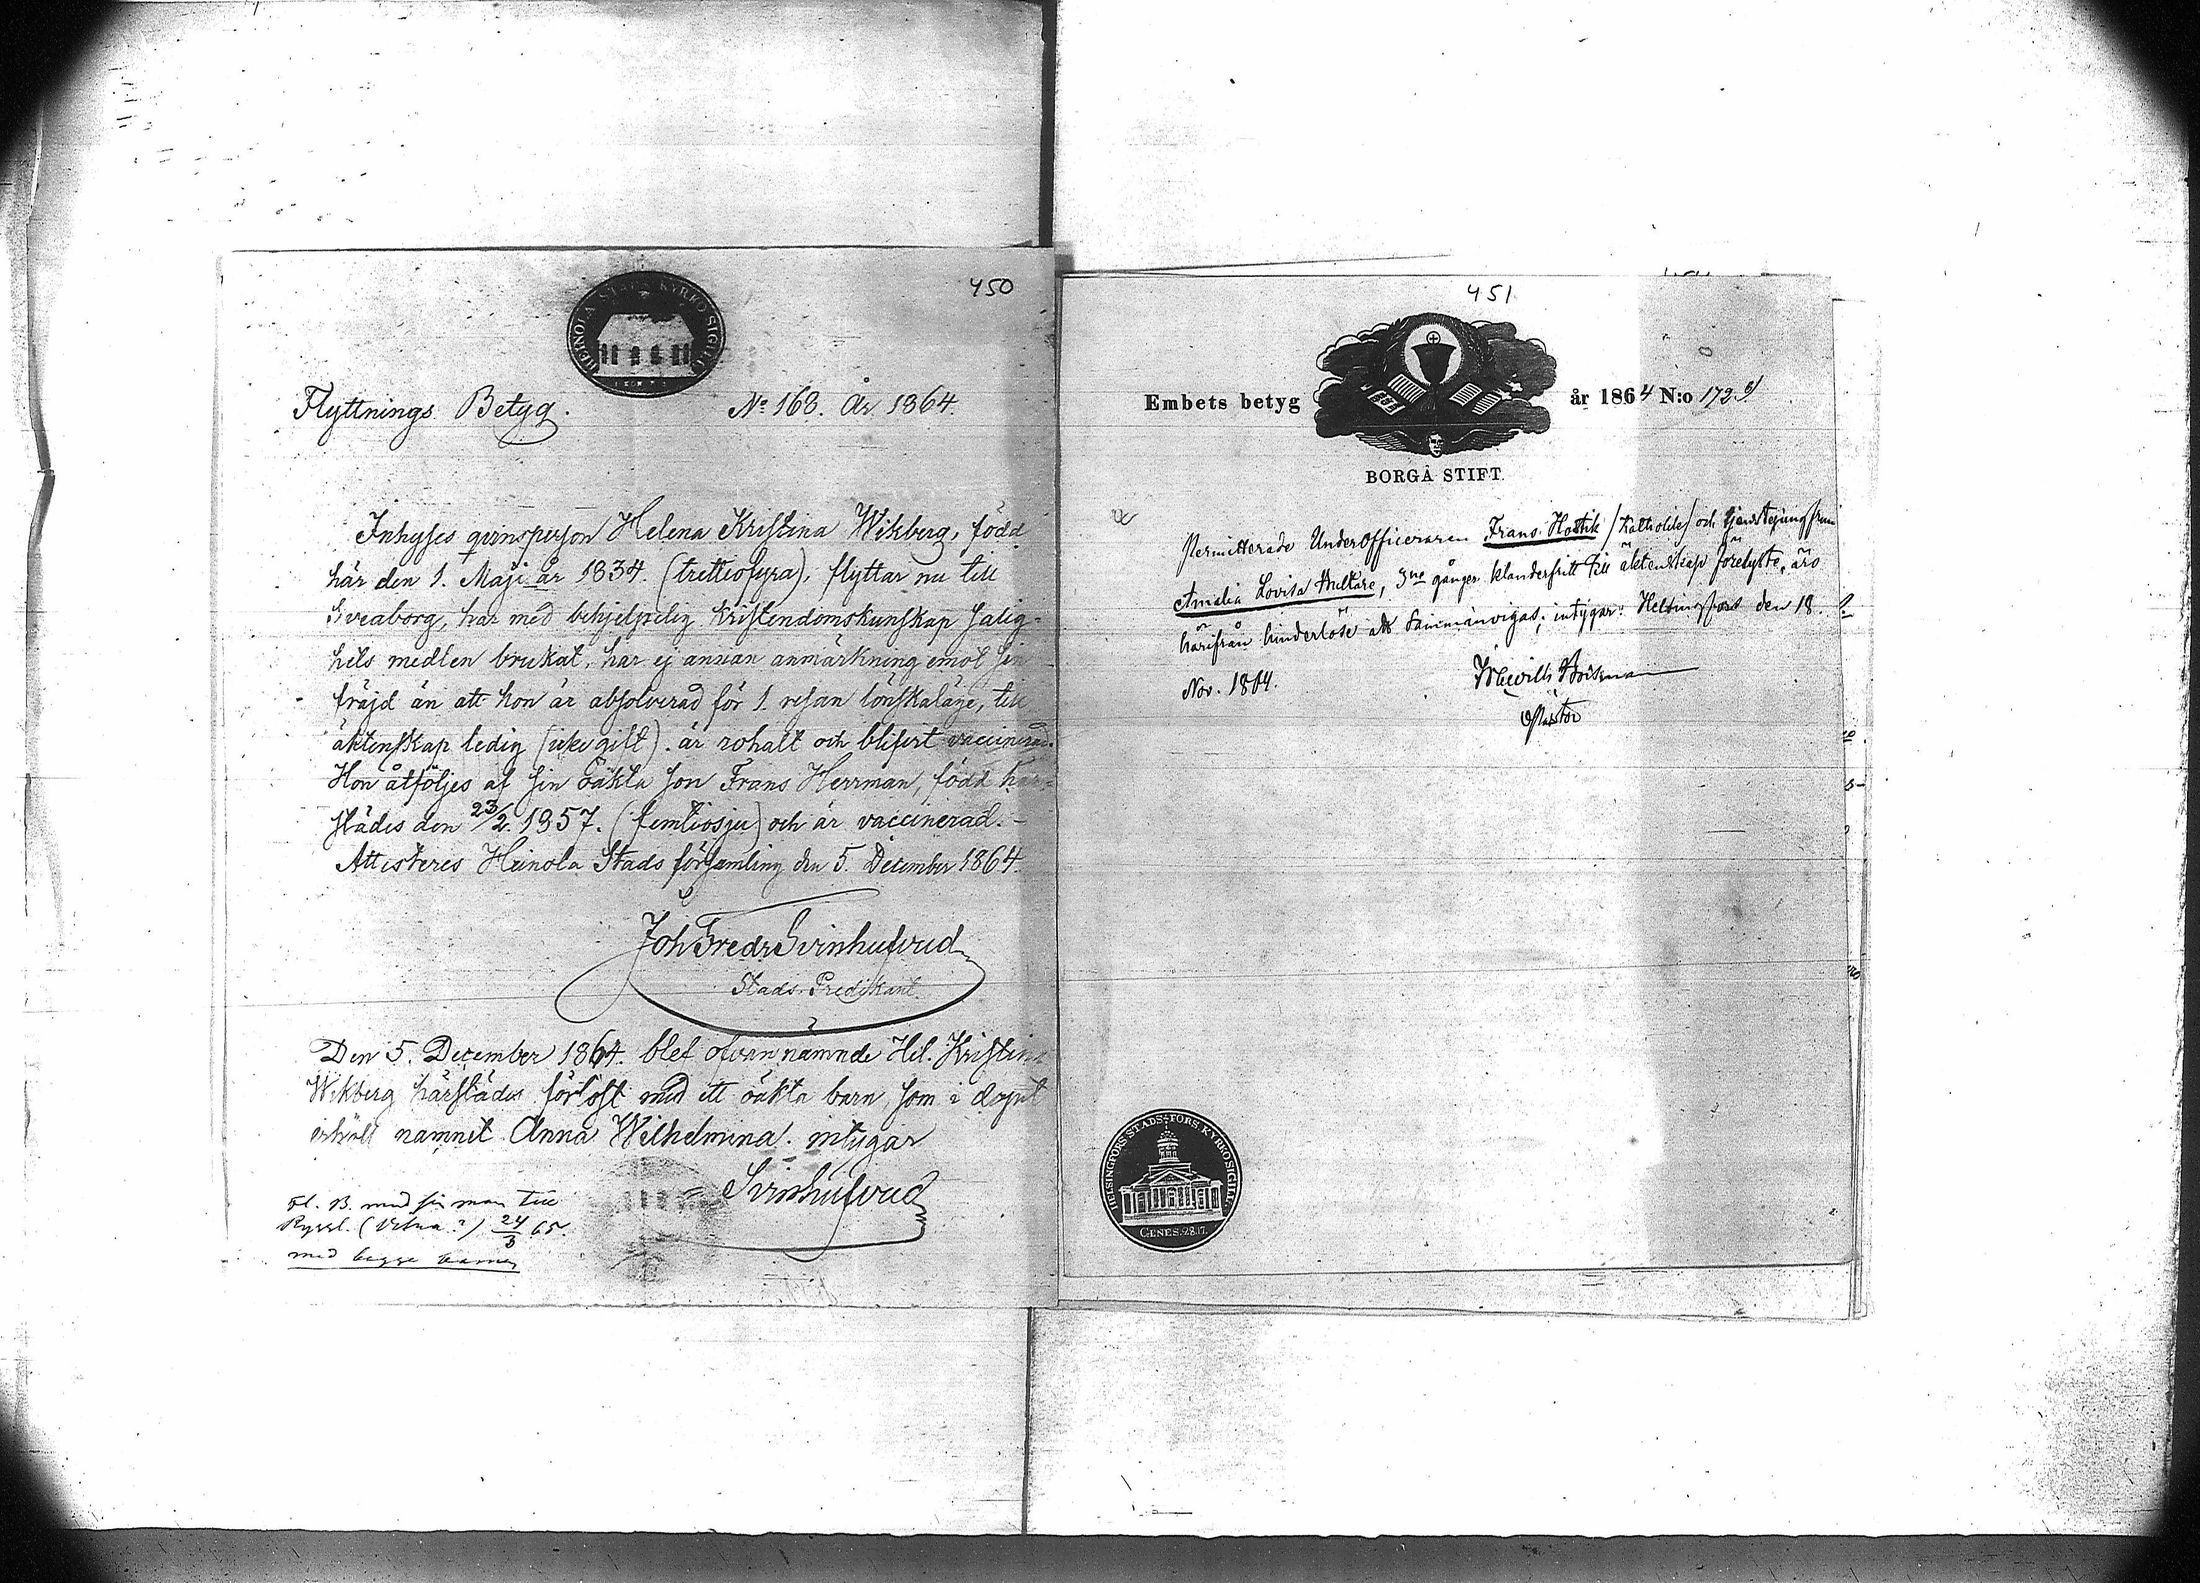 450
HEINOLA STADS KYRKO SIGILL
Flyttnings Betyg. No 168. År 1864.
Inhyses qvinsperson Helena Kristina Wikberg, född
här den 1. Maji år 1834. (trettiofyra), flyttar nu till
Sveaborg, har med behjelpelig kristendomskunskap salig-
hets medlen brukat, har ej annan anmärkning emot sin
fräjd än att hon är absolverad för 1. resan lönskaläge, till
äktenskap ledig (icke gift). är rohatt och blifvit vaccinerad.
Hon åtföljes af sin oäkta son Frans Herrman, född här-
städes den 23/2. 1857. (femtiosju) och är vaccinerad. -
Attesteres Heinola Stads församling den 5. December 1864.
Joh Fredr Svinhufvud
Stads Predikant.
Den 5. December 1864. blef ofvan nämnde Hel. Kristina
Wikberg härstädes förlöst med ett oäkta barn som i dopet
erhållit namnet Anna Wilhelmina. intygar
Svinhufvud
Fl. B. med sin man till
Ryssl. (Vilna?) 24/3 65.
med begge barnen
451
Embets betyg år 1864 N:o 172
BORGÅ STIFT.
Permitterade Underofficeraren Frans Hostik /Katholik/ och tjenstejungfrun
Amalia Lovisa Hultare, 3ne gånger klanderfritt till äktenskap förelyste, äro
härifrån hinderlöse att sammanvigas; intygar: Helsingfors den 18.
Nov. 1864.
Pastor
HELSINGFORS STADS-FÖRS KYRKOSIGILL
GENES. 28.17.